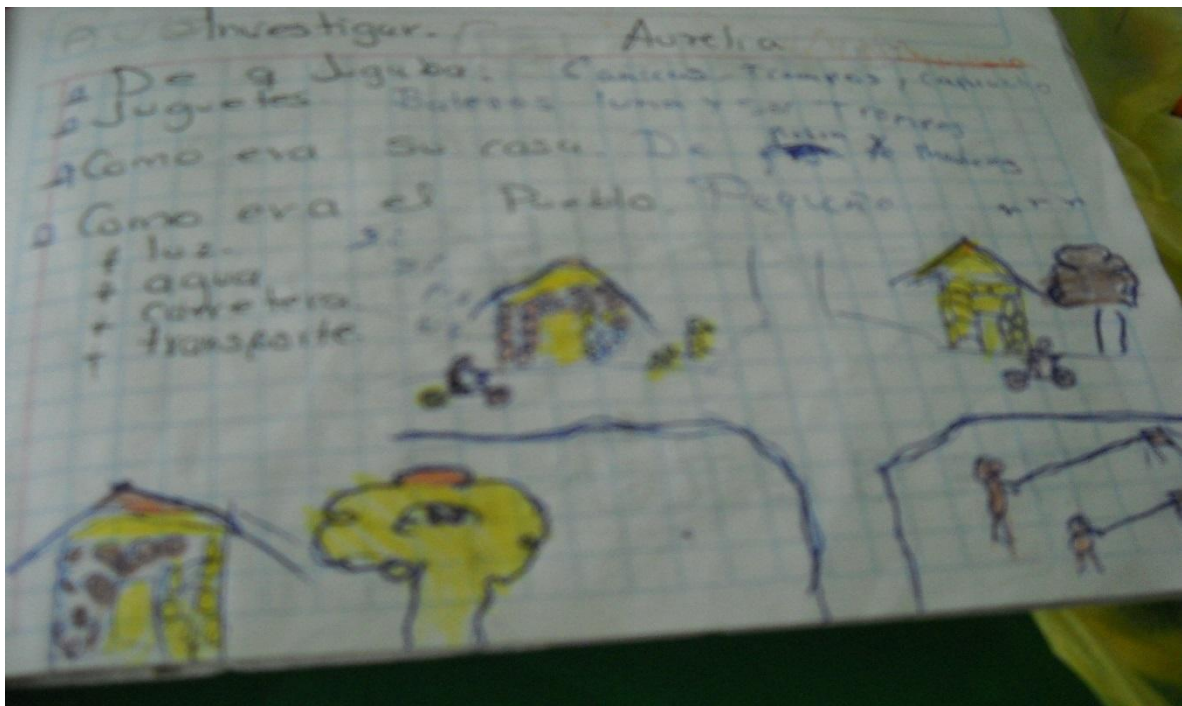 Investigar. Aurelia
De q Jugaba. Canicas Trompos,
Juguetes Baleros luna y sol Trenes
Como era su casa. De
Como era el Pueblo. Pequeño
+ luz si
+ agua
+ carretera
+ transporte